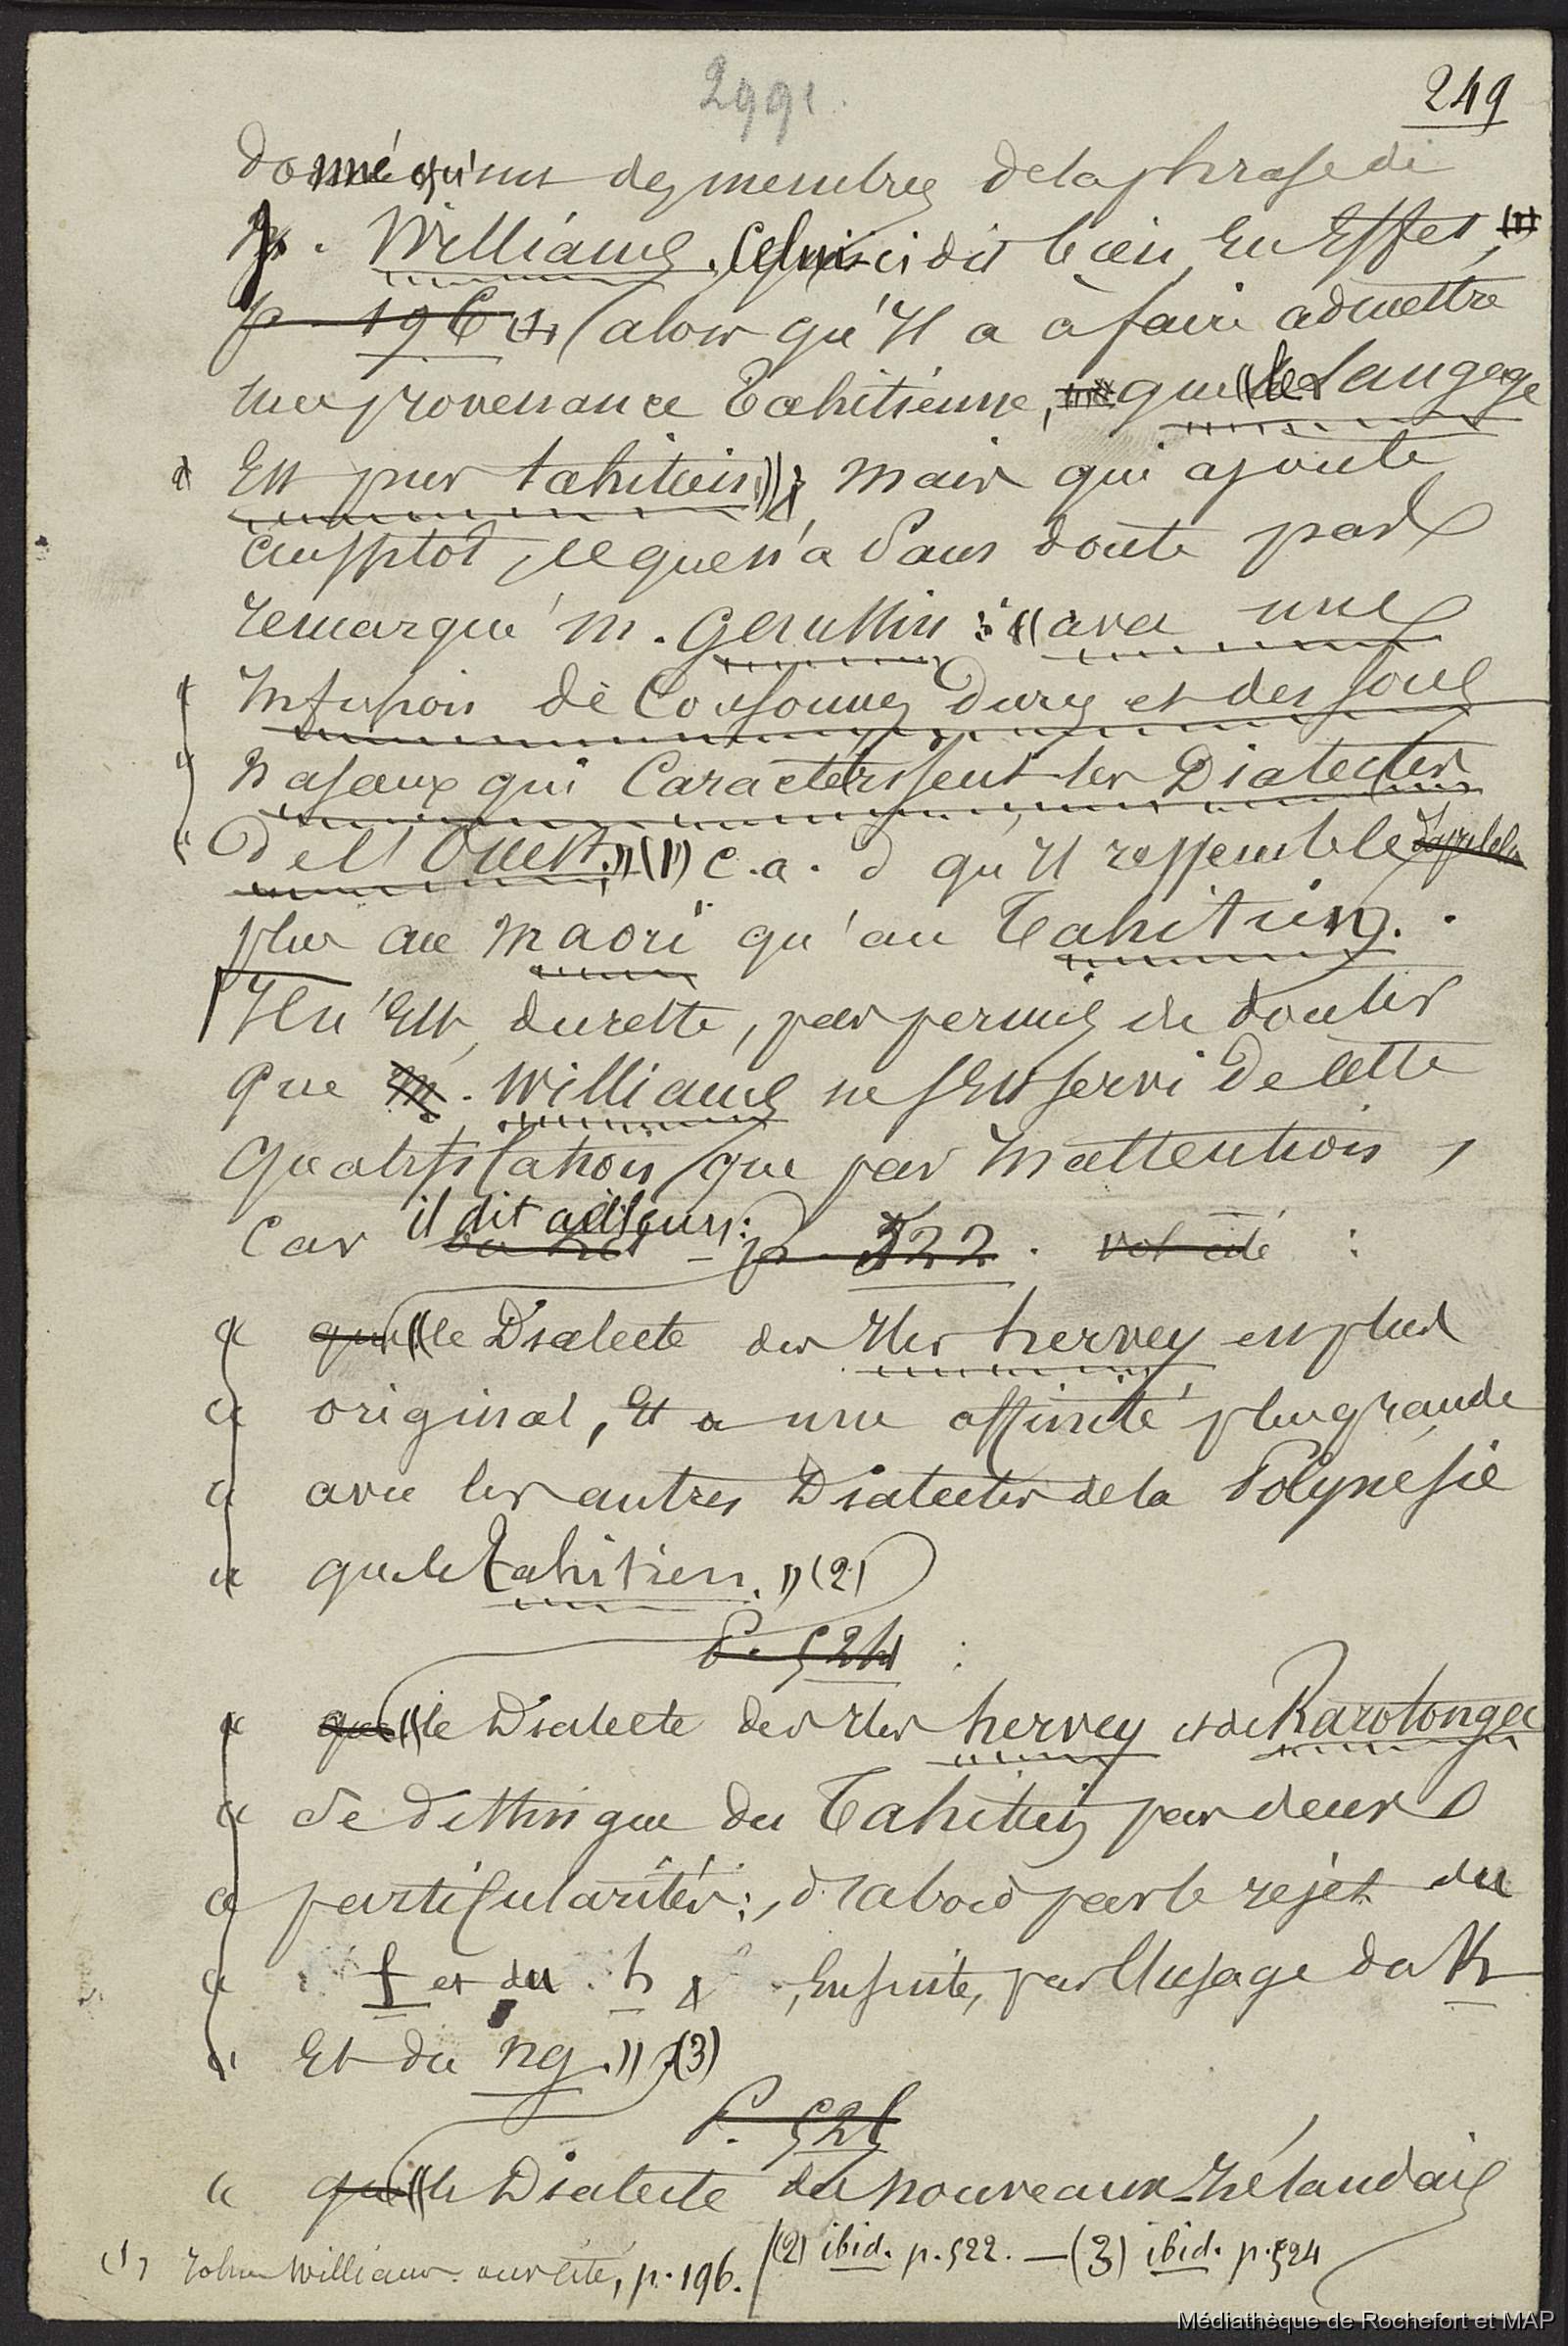 2991.
249
donné qu'un des membres de la phrase de
M. Williams. Celui-ci dit bien, en effet, (1)
p. 196 (alors qu'il a à faire admettre
une provenance Tahitienne, que «le langage
Est pur tahitien»; mais qui ajoute
aussitôt, ce que n'a sans doute pas
remarqué M. Gaussin : «avec une
Infusion de Consonnes dures et des sons
Nasaux qui Caractérisent les Dialectes
de l'Ouest.» (1) c. a. d qu'il ressemble
plus au Maori qu'au Tahitien.
Il n'Est, du reste, pas permis de douter
que M. Williams ne s'Est servi de cette
qualification que par Inattention,
Car il dit ailleurs: p. 522. vol cité :
« que «le Dialecte des Iles hervey est plus
« original, Et a une affinité plus grande
« avec les autres Dialectes de la Polynésie
« que le Tahitien.» (2)
P. 524 :
« que «le Dialecte des Iles hervey et de Rarotonga
« se distingue du Tahitien par deux
« particularités:, d'abord par le rejet du
« f et du h, Ensuite, par l'usage du K
« Et du ng.» (3)
P. 525
« que «le Dialecte des nouveaux-zélandais
(1) John Williams. ouvr cité, p. 196. / (2) ibid. p. 522. — (3) ibid. p. 524
Médiathèque de Rochefort et MAP